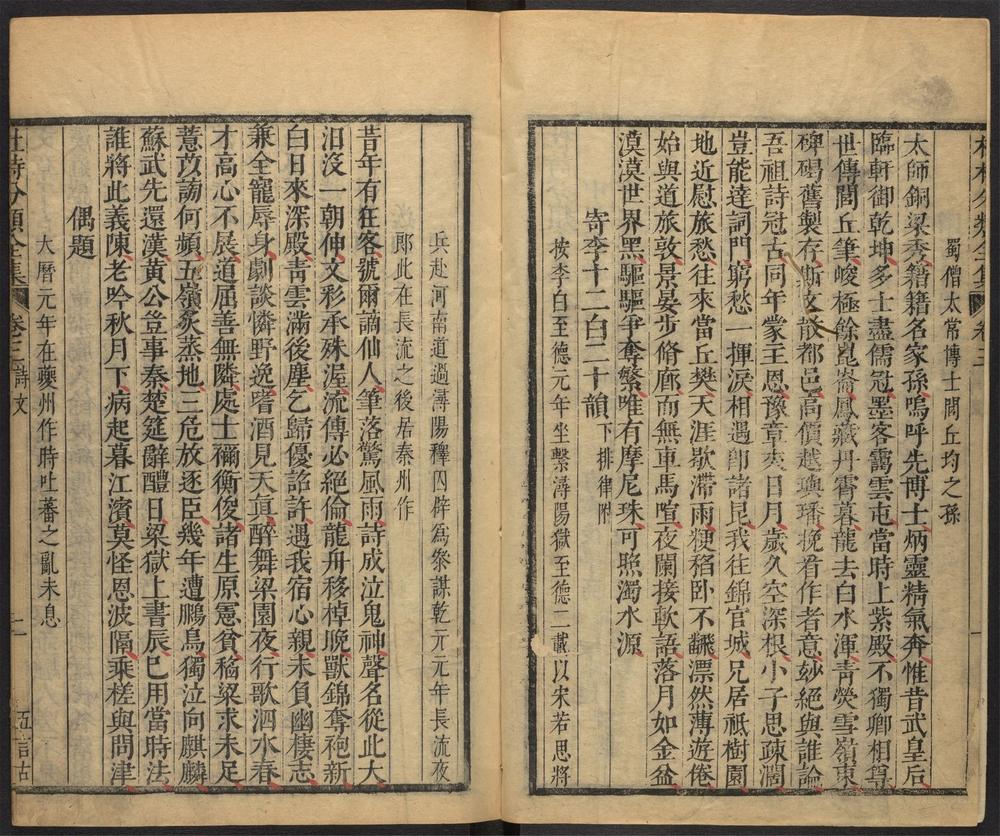 杜詩分類全集 卷三
蜀僧太常博士閭丘均之孫
太師銅梁秀籍籍名家孫嗚呼先博士炳靈精氣奔惟昔武皇后
臨軒御乾坤多士盡儒冠墨客靄雲屯當時上紫殿不獨卿相尊
世傳閭丘筆峻極餘崑崙鳳藏丹霄暮龍去白水渾青熒雪嶺東
碑碣舊製存斯文散都邑高價越璵璠挽看作者意妙絕與誰論
吾祖詩冠古同年蒙主恩豫章夾日月歲久空深根小子思疎闊
豈能達詞門窮愁一揮淚相遇即諸昆我往錦官城兄居祇樹園
地近慰旅愁往來當丘樊天涯歇滯雨粳稻臥不飜漂然薄遊倦
始與道旅敦景晏步脩廊而無車馬喧夜闌接軟語落月如金盆
漠漠世界黑驅驅爭奪繁唯有摩尼珠可照濁水源
寄李十二白二十韻 下排律附
按李白至德元年坐繫潯陽獄至德二載以宋若思將
兵赴河南道過潯陽釋囚辟爲參謀乾元元年長流夜
郎此在長流之後居秦州作
昔年有狂客號爾謫仙人筆落驚風雨詩成泣鬼神聲名從此大
汨沒一朝伸文彩承殊渥流傳必絕倫龍舟移棹晚獸錦奪袍新
白日來深殿青雲滿後塵乞歸優詔許遇我宿心親未負幽棲志
兼全寵辱身劇談憐野逸嗜酒見天眞醉舞梁園夜行歌泗水春
才高心不展道屈善無隣處士禰衡俊諸生原憲貧稻粱求未足
薏苡謗何頻五嶺炎蒸地三危放逐臣幾年遭鵩鳥獨泣向麒麟
蘇武先還漢黃公豈事秦楚筵辭醴日梁獄上書辰已用當時法
誰將此義陳老吟秋月下病起暮江濱莫怪恩波隔乘槎與問津
偶題
大曆元年在夔州作時吐蕃之亂未息
杜詩分類全集 卷三 詩文 二 五言古